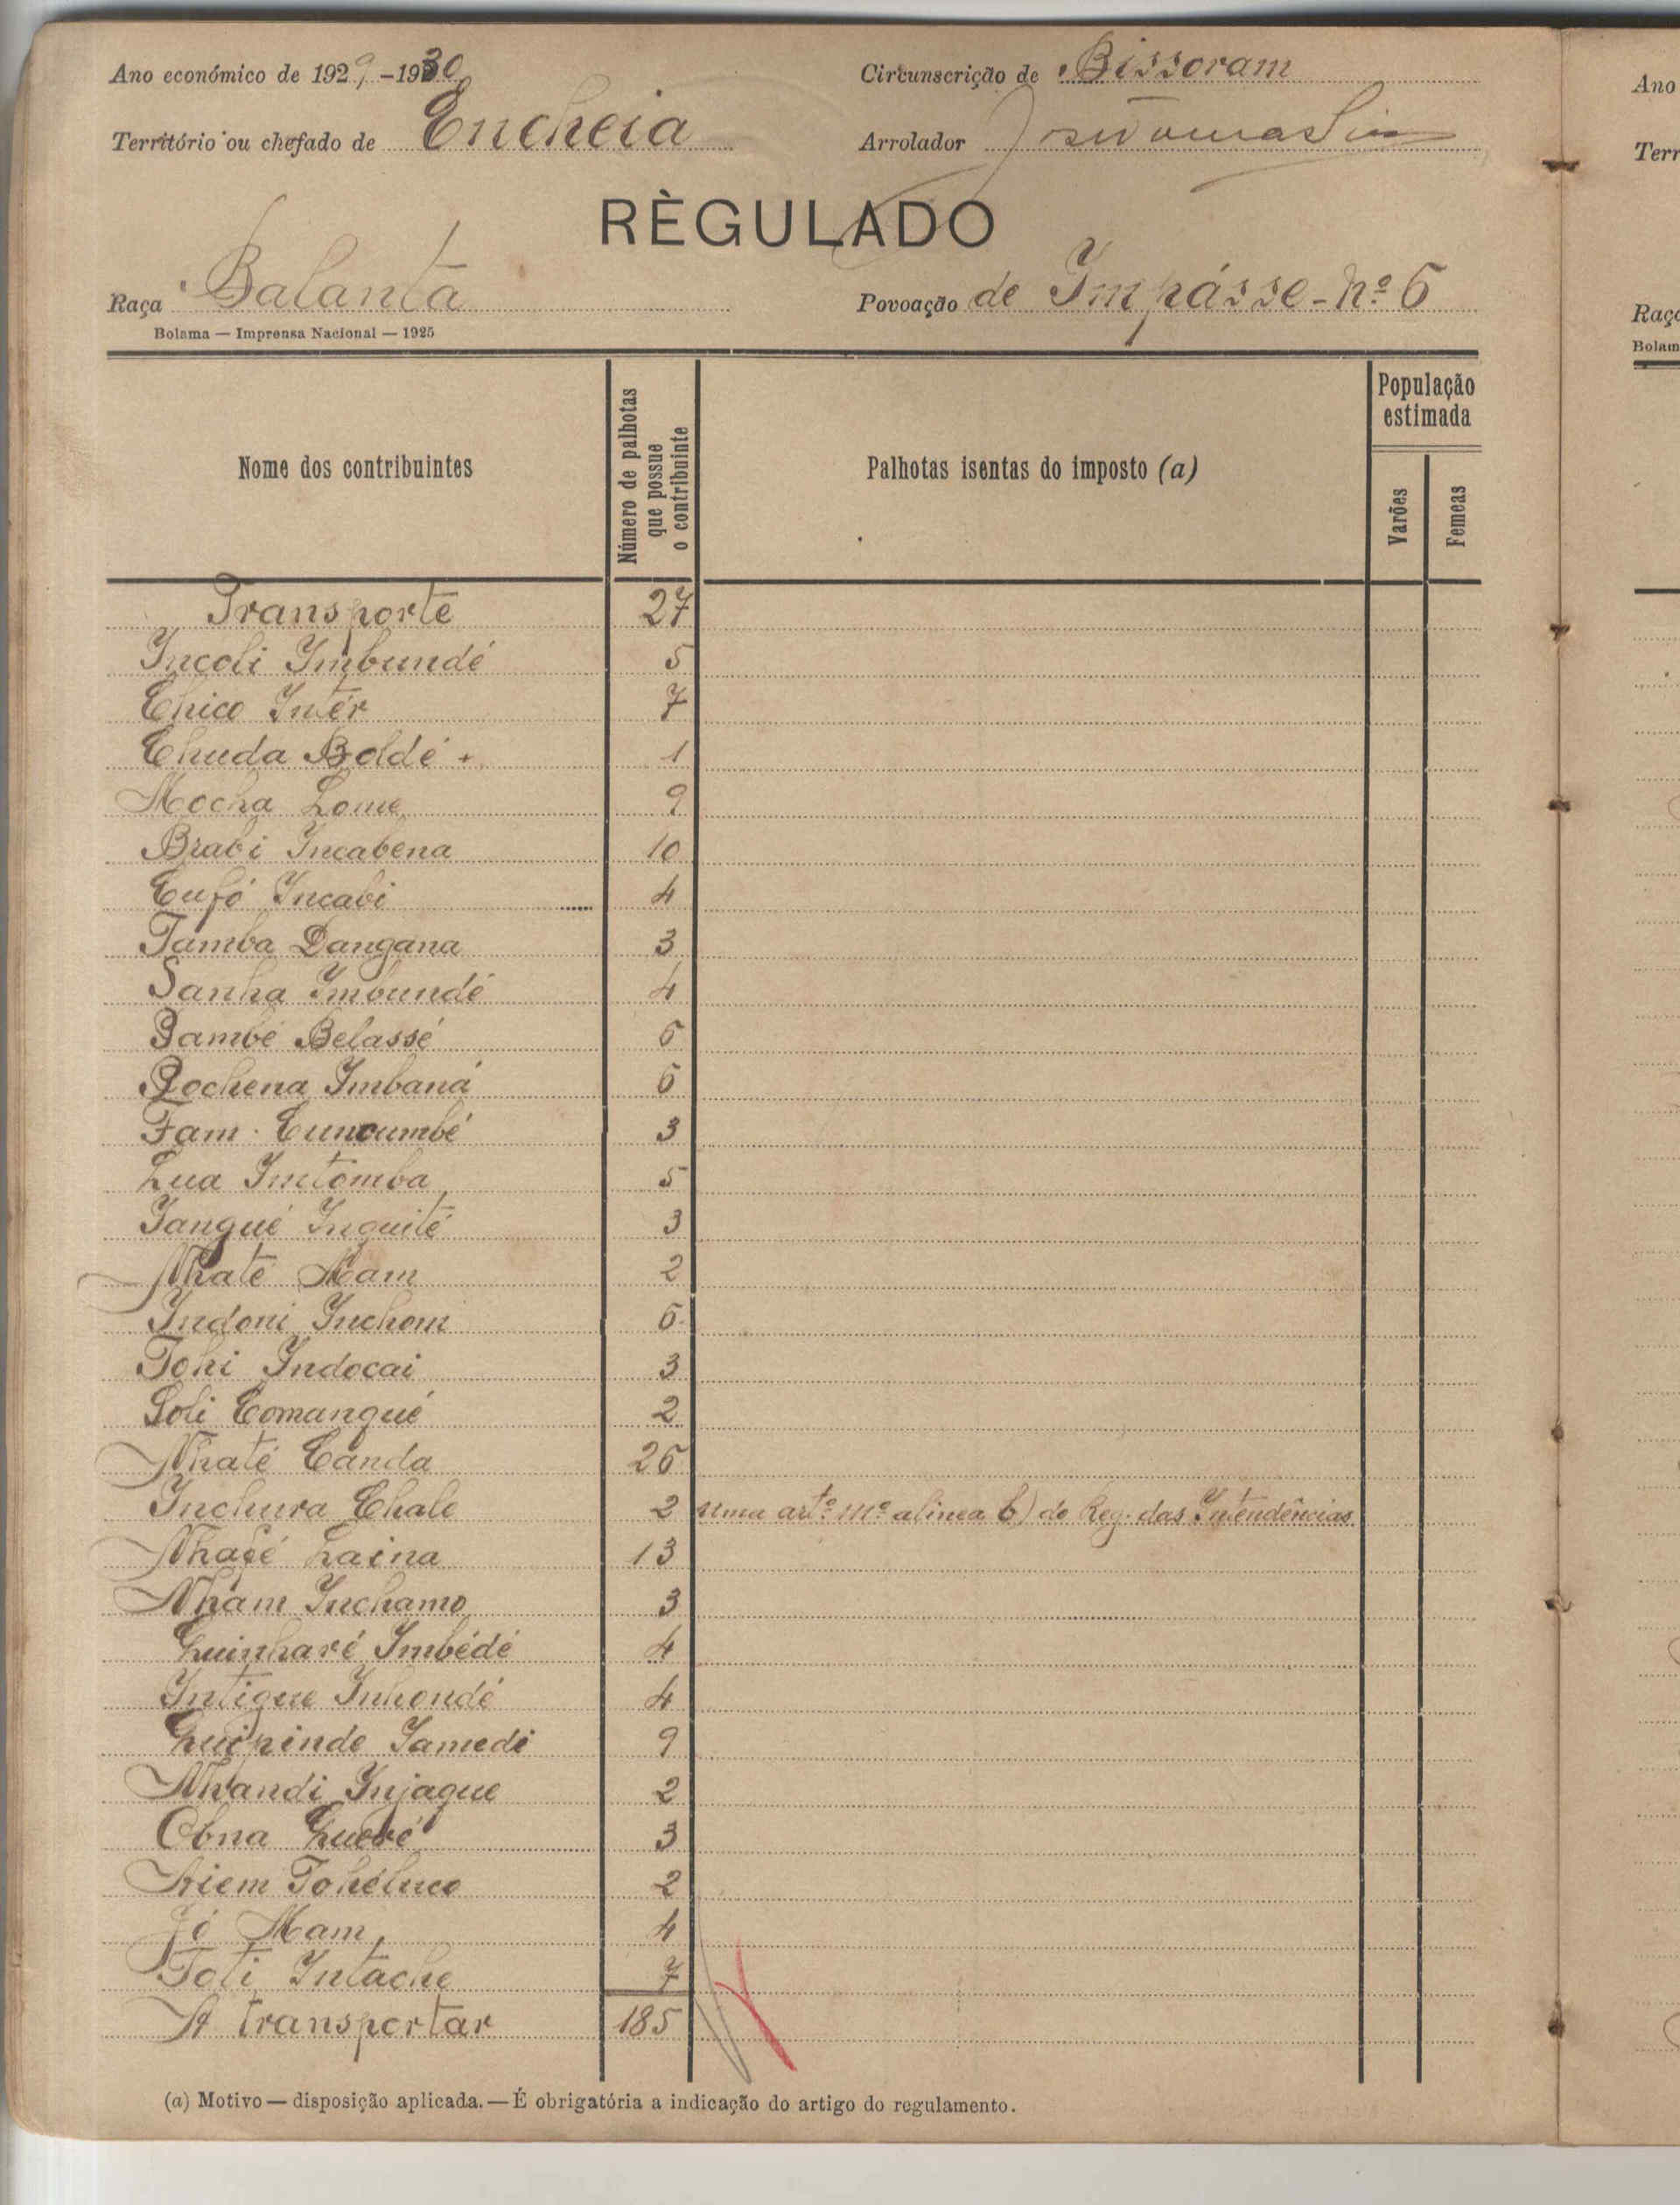 Ano económico de 1929-1930
Circunscrição de Bissoram
Território ou chefado de Encheia
Arrolador
RÈGULADO
Raça Balanta
Povoação de Impásse-Nº 6
Bolama — Imprensa Nacional — 1925
Nome dos contribuintes
Número de palhotas que possue o contribuinte
Palhotas isentas do imposto (a)
População estimada
Varões
Femeas
Transporte 27
Incoli Imbundé 5
Chico Intér 7
Chuda Boldé + 1
Mocha Lome 9
Brabi Incabena 10
Cufó Incabi 4
Tamba Dangana 3
Sanha Imbundé 4
Bambé Belassé 6
Rochena Imbaná 6
Fam Cunoumbé 3
Lua Intomba 5
Iangué Inquité 3
Nhaté Mam 2
Indoni Inchom 6
Tohi Indocai 3
Soli Comangué 2
Nhaté Canda 26
Inchura Chale 2 uma artº mº alinea b) do Reg. das Intendências
Nhafé Laina 13
Nham Inchamo 3
Quinharé Imbédé 4
Intigue Inhondé 4
Quipinde Samedi 9
Nhandi Injaque 2
Obna 3
Ariem 2
Jó Mam 4
Toti Intache 7
A transportar 185
(a) Motivo — disposição aplicada. — É obrigatória a indicação do artigo do regulamento.
Ano
Terr
Raça
Bolam